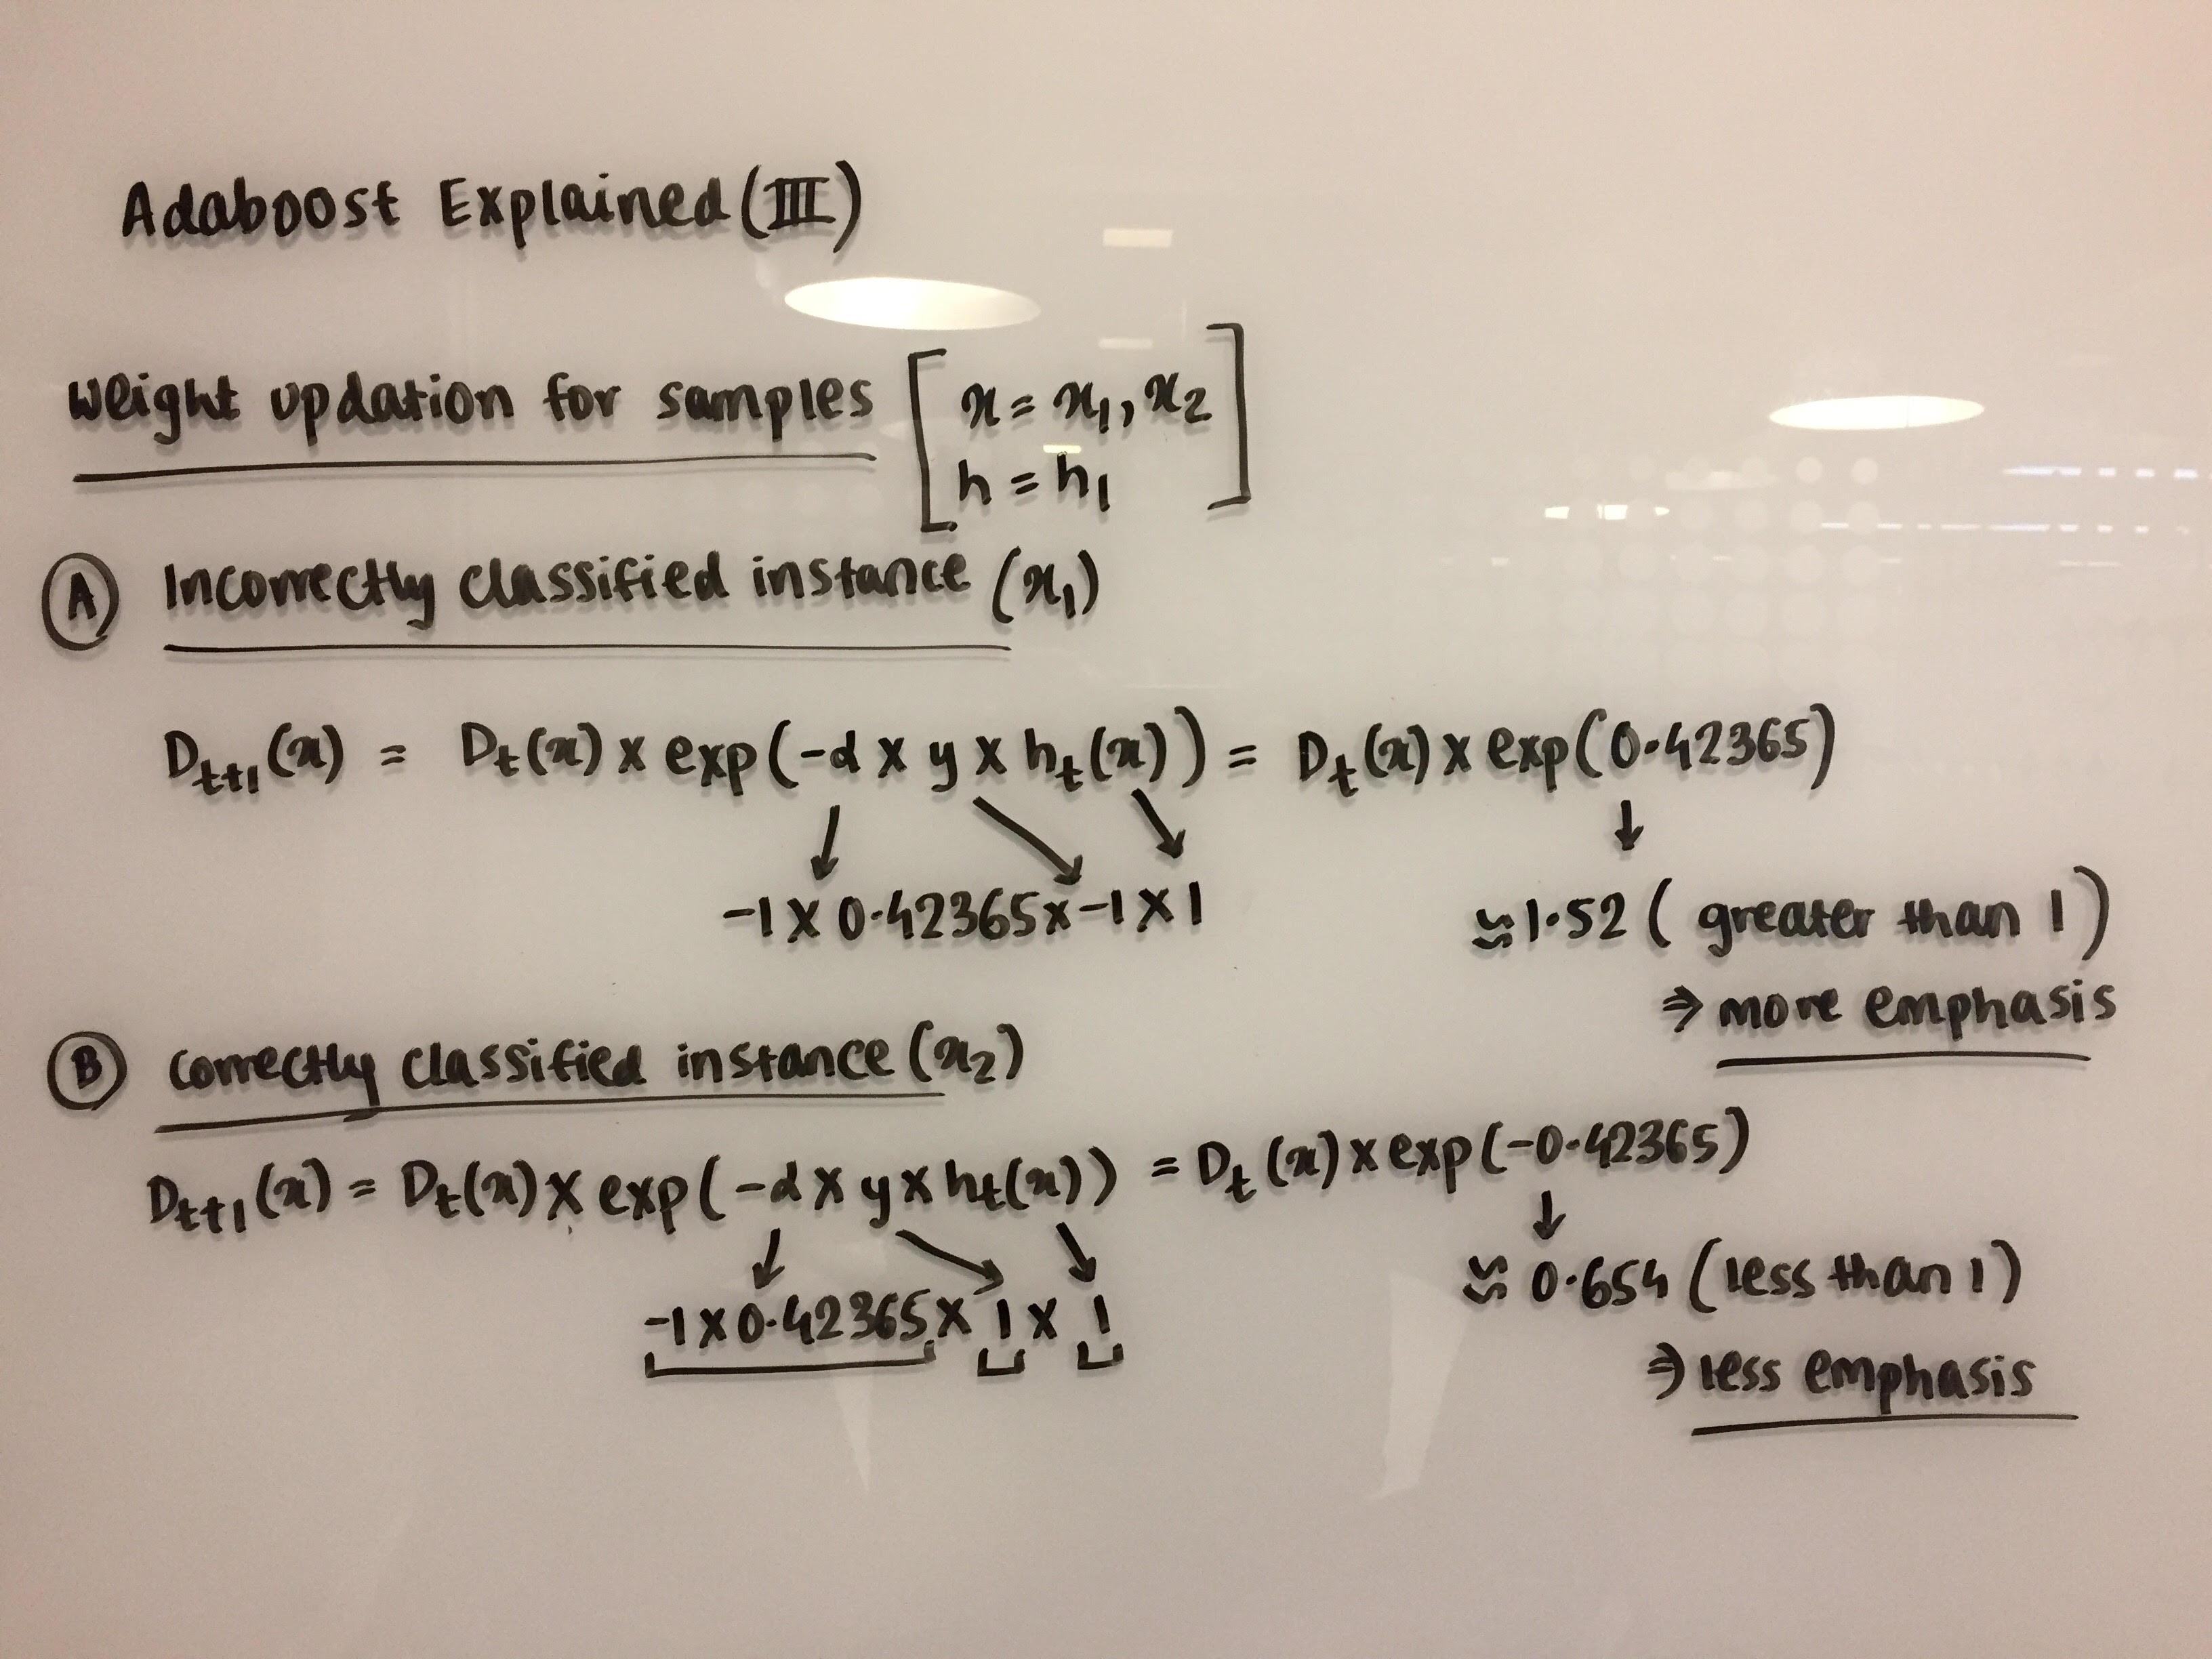 Adaboost Explained (III)
Weight updation for samples [ x = x₁, x₂
h = h₁ ]
(A) Incorrectly classified instance (x₁)
Dₜ₊₁(x) = Dₜ(x) x exp(-α x y x hₜ(x)) = Dₜ(x) x exp(0.42365)
↓ ↘ ↘ ↓
-1 x 0.42365 x -1 x 1 ≈ 1.52 (greater than 1)
⇒ more emphasis
(B) correctly classified instance (x₂)
Dₜ₊₁(x) = Dₜ(x) x exp(-α x y x hₜ(x)) = Dₜ(x) x exp(-0.42365)
↓ ↘ ↘ ↓
-1 x 0.42365 x 1 x 1 ≈ 0.654 (less than 1)
⇒ less emphasis